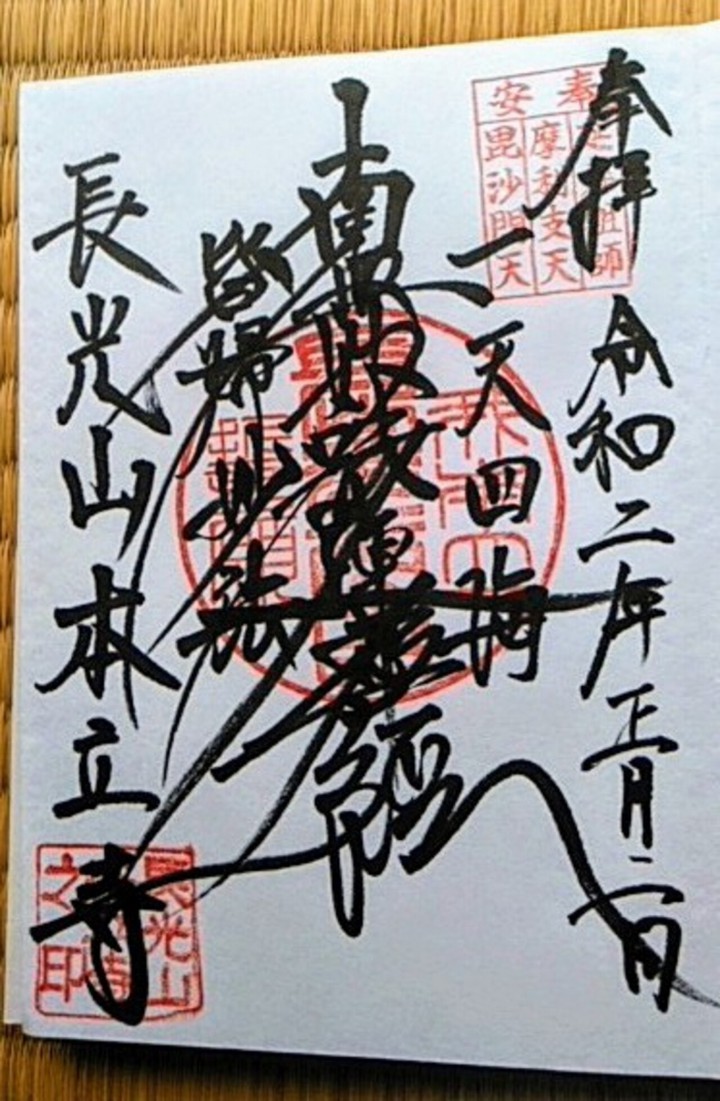 奉拝 令和二年正月二日
一天四海
南無妙法蓮華經
皆帰妙法
長光山本立寺
奉安
摩利支天
毘沙門天
長光山
本立寺
之印